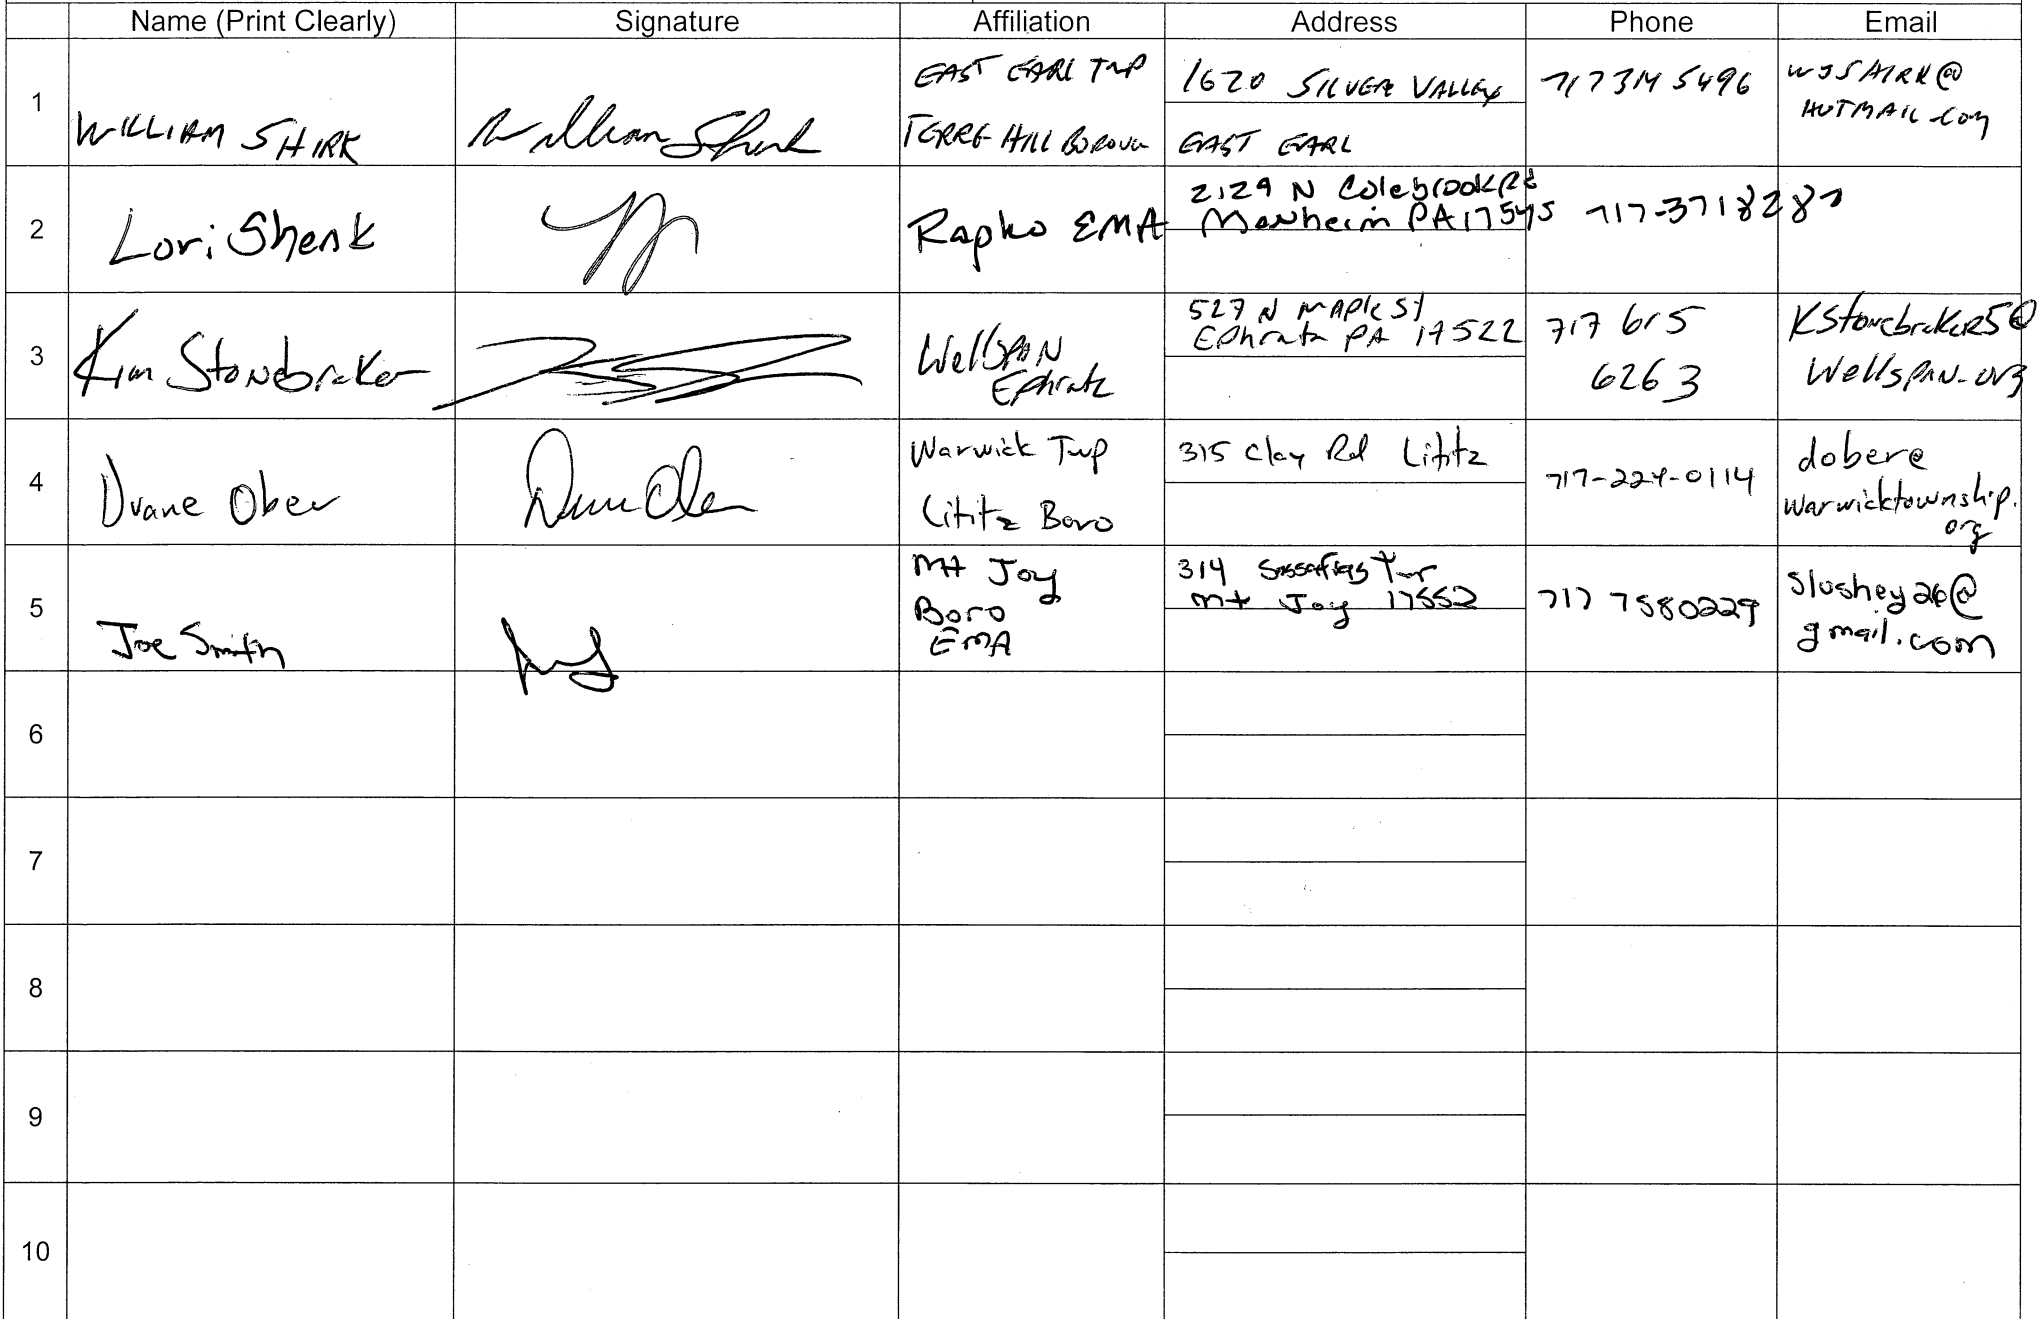 Name (Print Clearly) Signature Affiliation Address Phone Email
1
WILLIAM SHIRK
William Shirk
EAST EARL TWP
TERRE HILL BOROUGH
1620 SILVER VALLEY
EAST EARL
717 314 5496
WJSHIRK@
HOTMAIL.COM
2
Lori Shenk
Rapho EMA
2129 N Colebrook Rd
Manheim PA 17545
717-371828
3
Kim Stonebraker
WellSPAN
Ephrata
527 N Maple St
Ephrata PA 17522
717 615
6263
KStonebraker5@
WellSPAN.org
4
Duane Ober
Duane Ober
Warwick Twp
Lititz Boro
315 Clay Rd Lititz
717-224-0114
dobere
warwicktownship.
org
5
Joe Smith
Mt Joy
Boro
EMA
314 Sassafras Terr
Mt Joy 17552
717 7580229
slushey26@
gmail.com
6
7
8
9
10